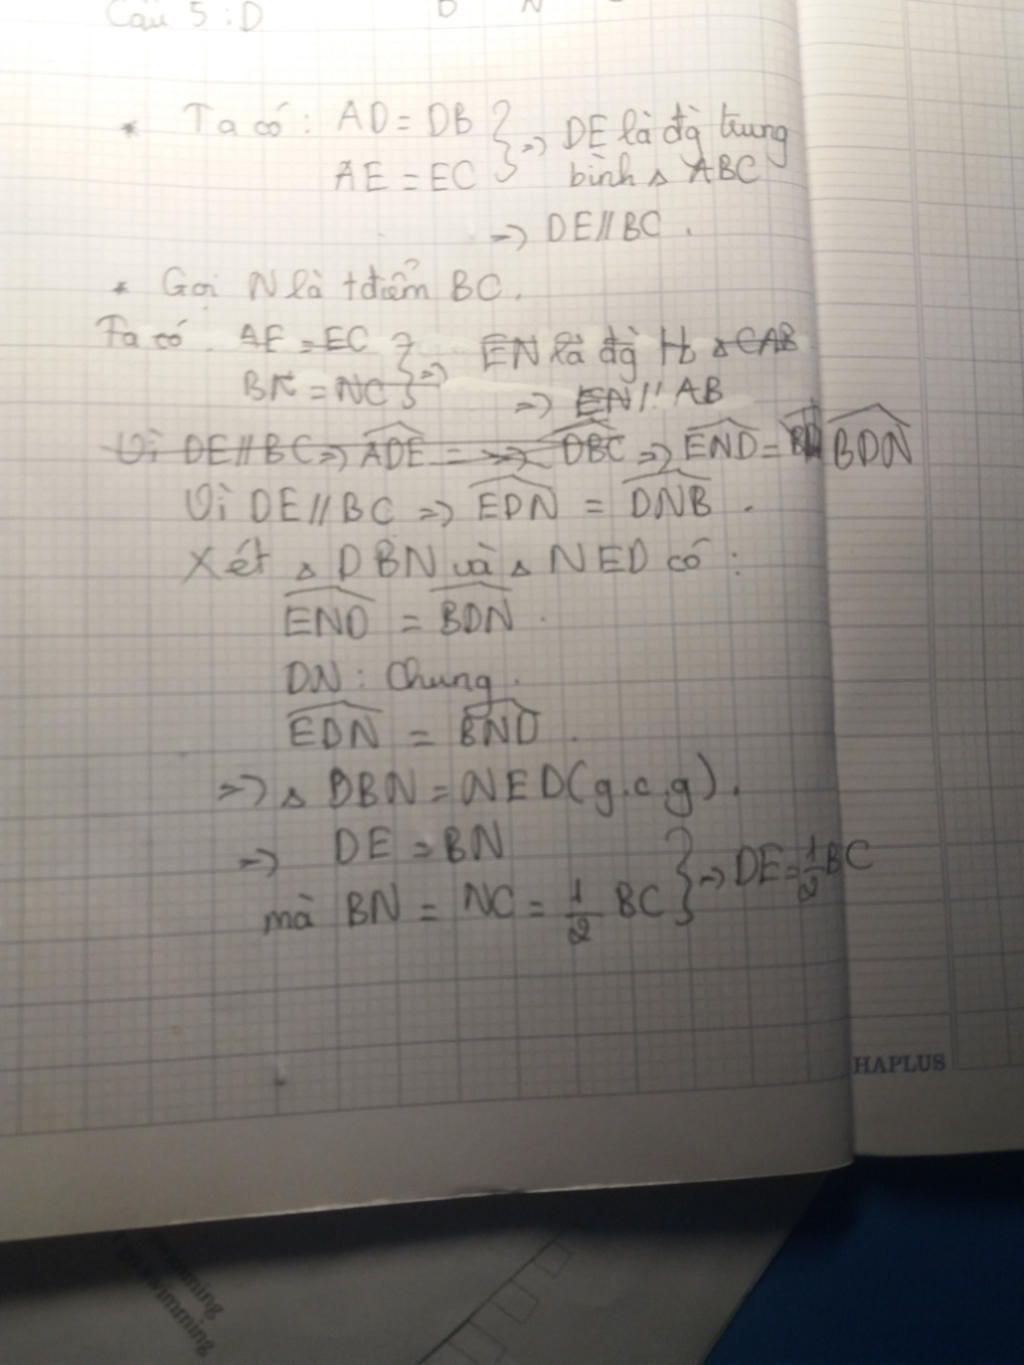 Câu 5 : D
D N
* Ta có : AD = DB } => DE là đg trung
AE = EC bình △ ABC
=> DE // BC .
* Gọi N là tđiểm BC .
Ta có . AE = EC } => EN là đg tb △ CAB
BN = NC => EN // AB
Vì DE // BC => ADE = DBC => END = BDN
Vì DE // BC => EDN = DNB .
Xét △ DBN và △ NED có :
END = BDN .
DN : Chung .
EDN = BND .
=> △ DBN = NED (g.c.g) .
=> DE = BN } => DE = 1/2 BC
mà BN = NC = 1/2 BC
HAPLUS
swimming